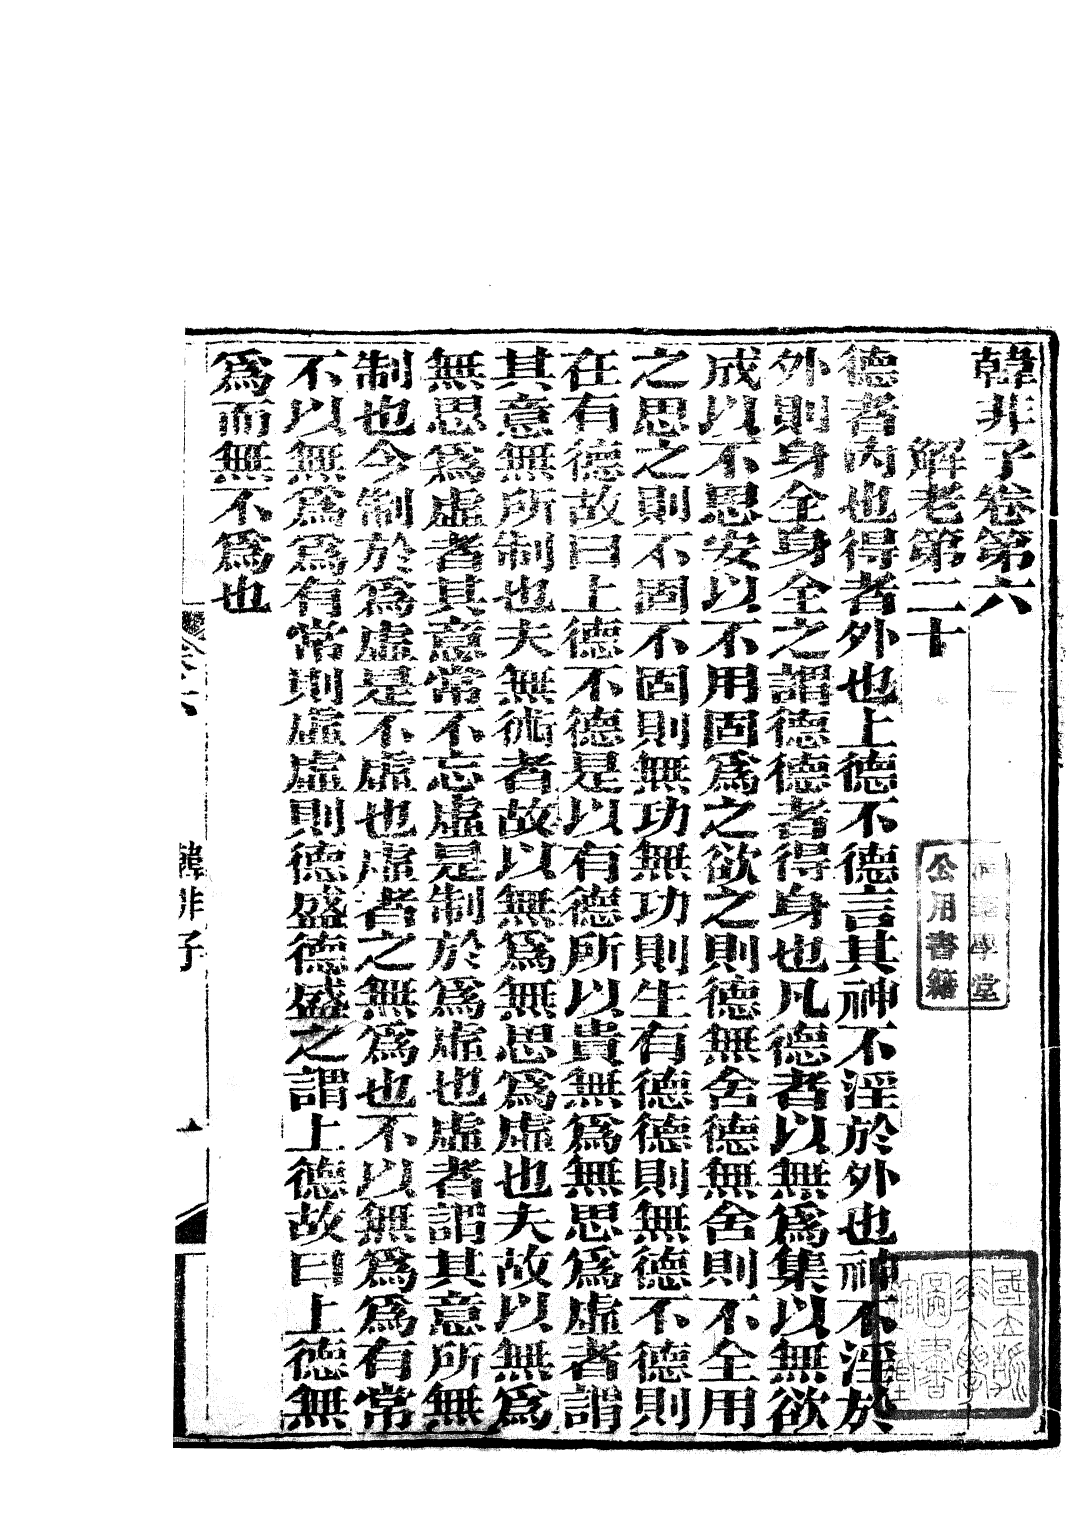 韓非子卷第六
解老第二十
德者內也得者外也上德不德言其神不淫於外也神不淫於
外則身全身全之謂德德者得身也凡德者以無爲集以無欲
成以不思安以不用固爲之欲之則德無舍德無舍則不全用
之思之則不固不固則無功無功則生有德德則無德不德則
在有德故曰上德不德是以有德所以貴無爲無思爲虛者謂
其意無所制也夫無術者故以無爲無思爲虛也夫故以無爲
無思爲虛者其意常不忘虛是制於爲虛也虛者謂其意所無
制也今制於爲虛是不虛也虛者之無爲也不以無爲爲有常
不以無爲爲有常則虛虛則德盛德盛之謂上德故曰上德無
爲而無不爲也
卷六
韓非子
一
公用書籍
學堂
國立
大學
圖書